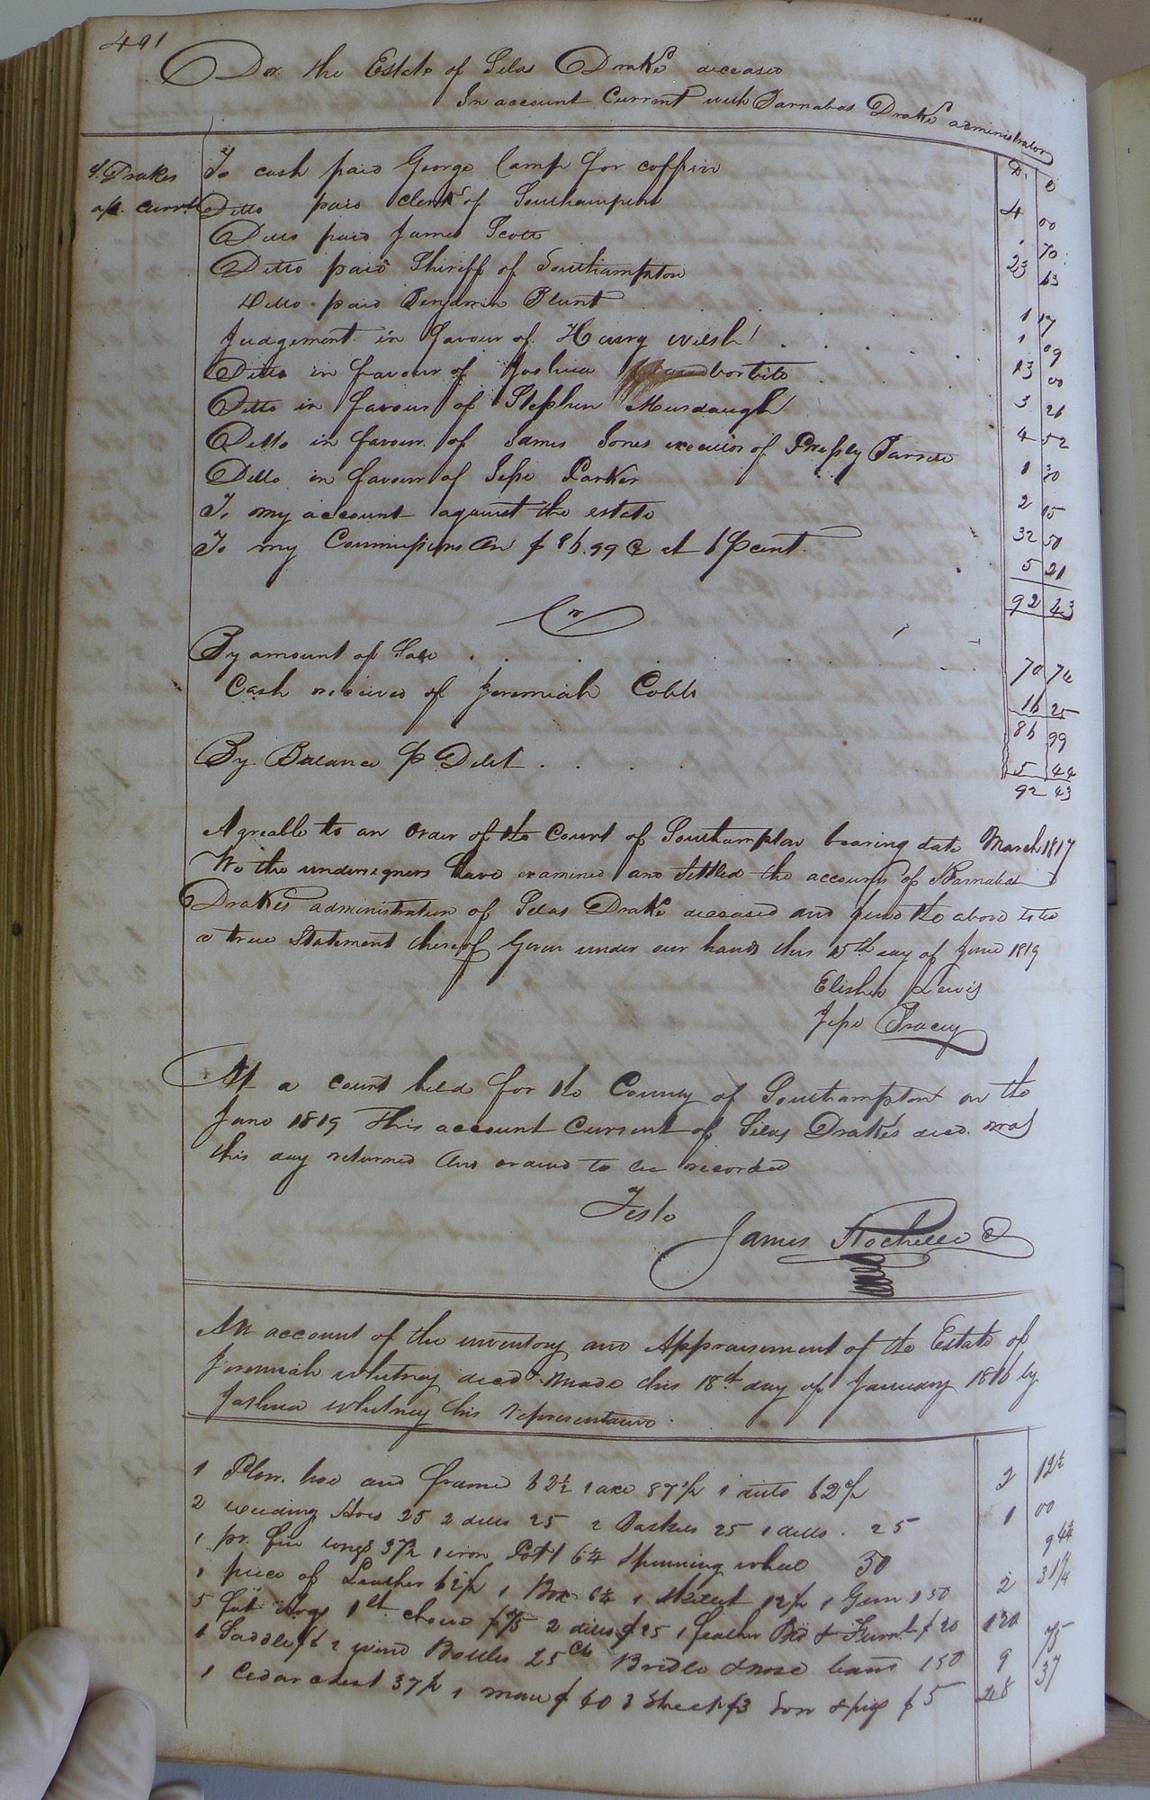 491
Dr. the Estate of Silas Drake deceased
In account Current with Barnabas Drake administrator
S. Drakes
a/c. currt
D. C
To cash paid George Camp for coffin 4 00
Ditto paid clerk of Southampton 70
Ditto paid James Scott 23 63
Ditto paid Sheriff of Southampton 1 17
Ditto paid Benjamin Blunt 1 09
Judgement in favour of Harry Welsh 13 00
Ditto in favour of Joshua 3 26
Ditto in favour of Stephen Murdaugh 4 52
Ditto in favour of James Jones executor of Presley 1 30
Ditto in favour of Jesse Parker 2 15
To my account against the estate 32 50
To my Commissions on $86.99 C at 6 P cent. 5 21
92 43
Cr
By amount of Sale 70 74
Cash received of Jeremiah Cobb 16 25
86 99
By Balance P Debt 5 44
92 43
Agreable to an order of the Court of Southampton bearing date March 1817
We the undersigners have examined and settled the accounts of Barnabas
Drakes administration of Silas Drake deceased and find the above to be
a true Statement thereof Given under our hands this 15th day of June 1819
Elisha Lewis
Jesse
At a court held for the County of Southampton on the
June 1819 This account Current of Silas Drakes decd. was
this day returned and ordered to be recorded
Teste
James Rochelle C
An account of the inventory and Appraisement of the Estate of
Jeremiah Whitney decd. made this 18th day of January 1816 by
Joshua Whitney his representative.
1 Plow. hoe and frame 62½ 1 axe 87½ 1 ditto 62½ 2 12½
2 weeding Hoes 25 2 ditto 25 2 Baskets 25 1 ditto. 25 1 00
1 pr. fire tongs 37½ 1 iron Pot 1 6¼ Spinning wheel 50
1 piece of Leather 62½ 1 Box 6¼ 1 Skillet 12½ 1 Gun 150 2 31¼
5 fat Hogs 1st choice $75 2 ditto $25 1 feather Bed & Furnt. $20 120
1 Saddle $6 2 wind Bottles 25 Cts Bridle & 150 9 75
1 Cedar chest 37½ 1 mare $40 3 Sheep $3 Sow & pigs $5 48 37